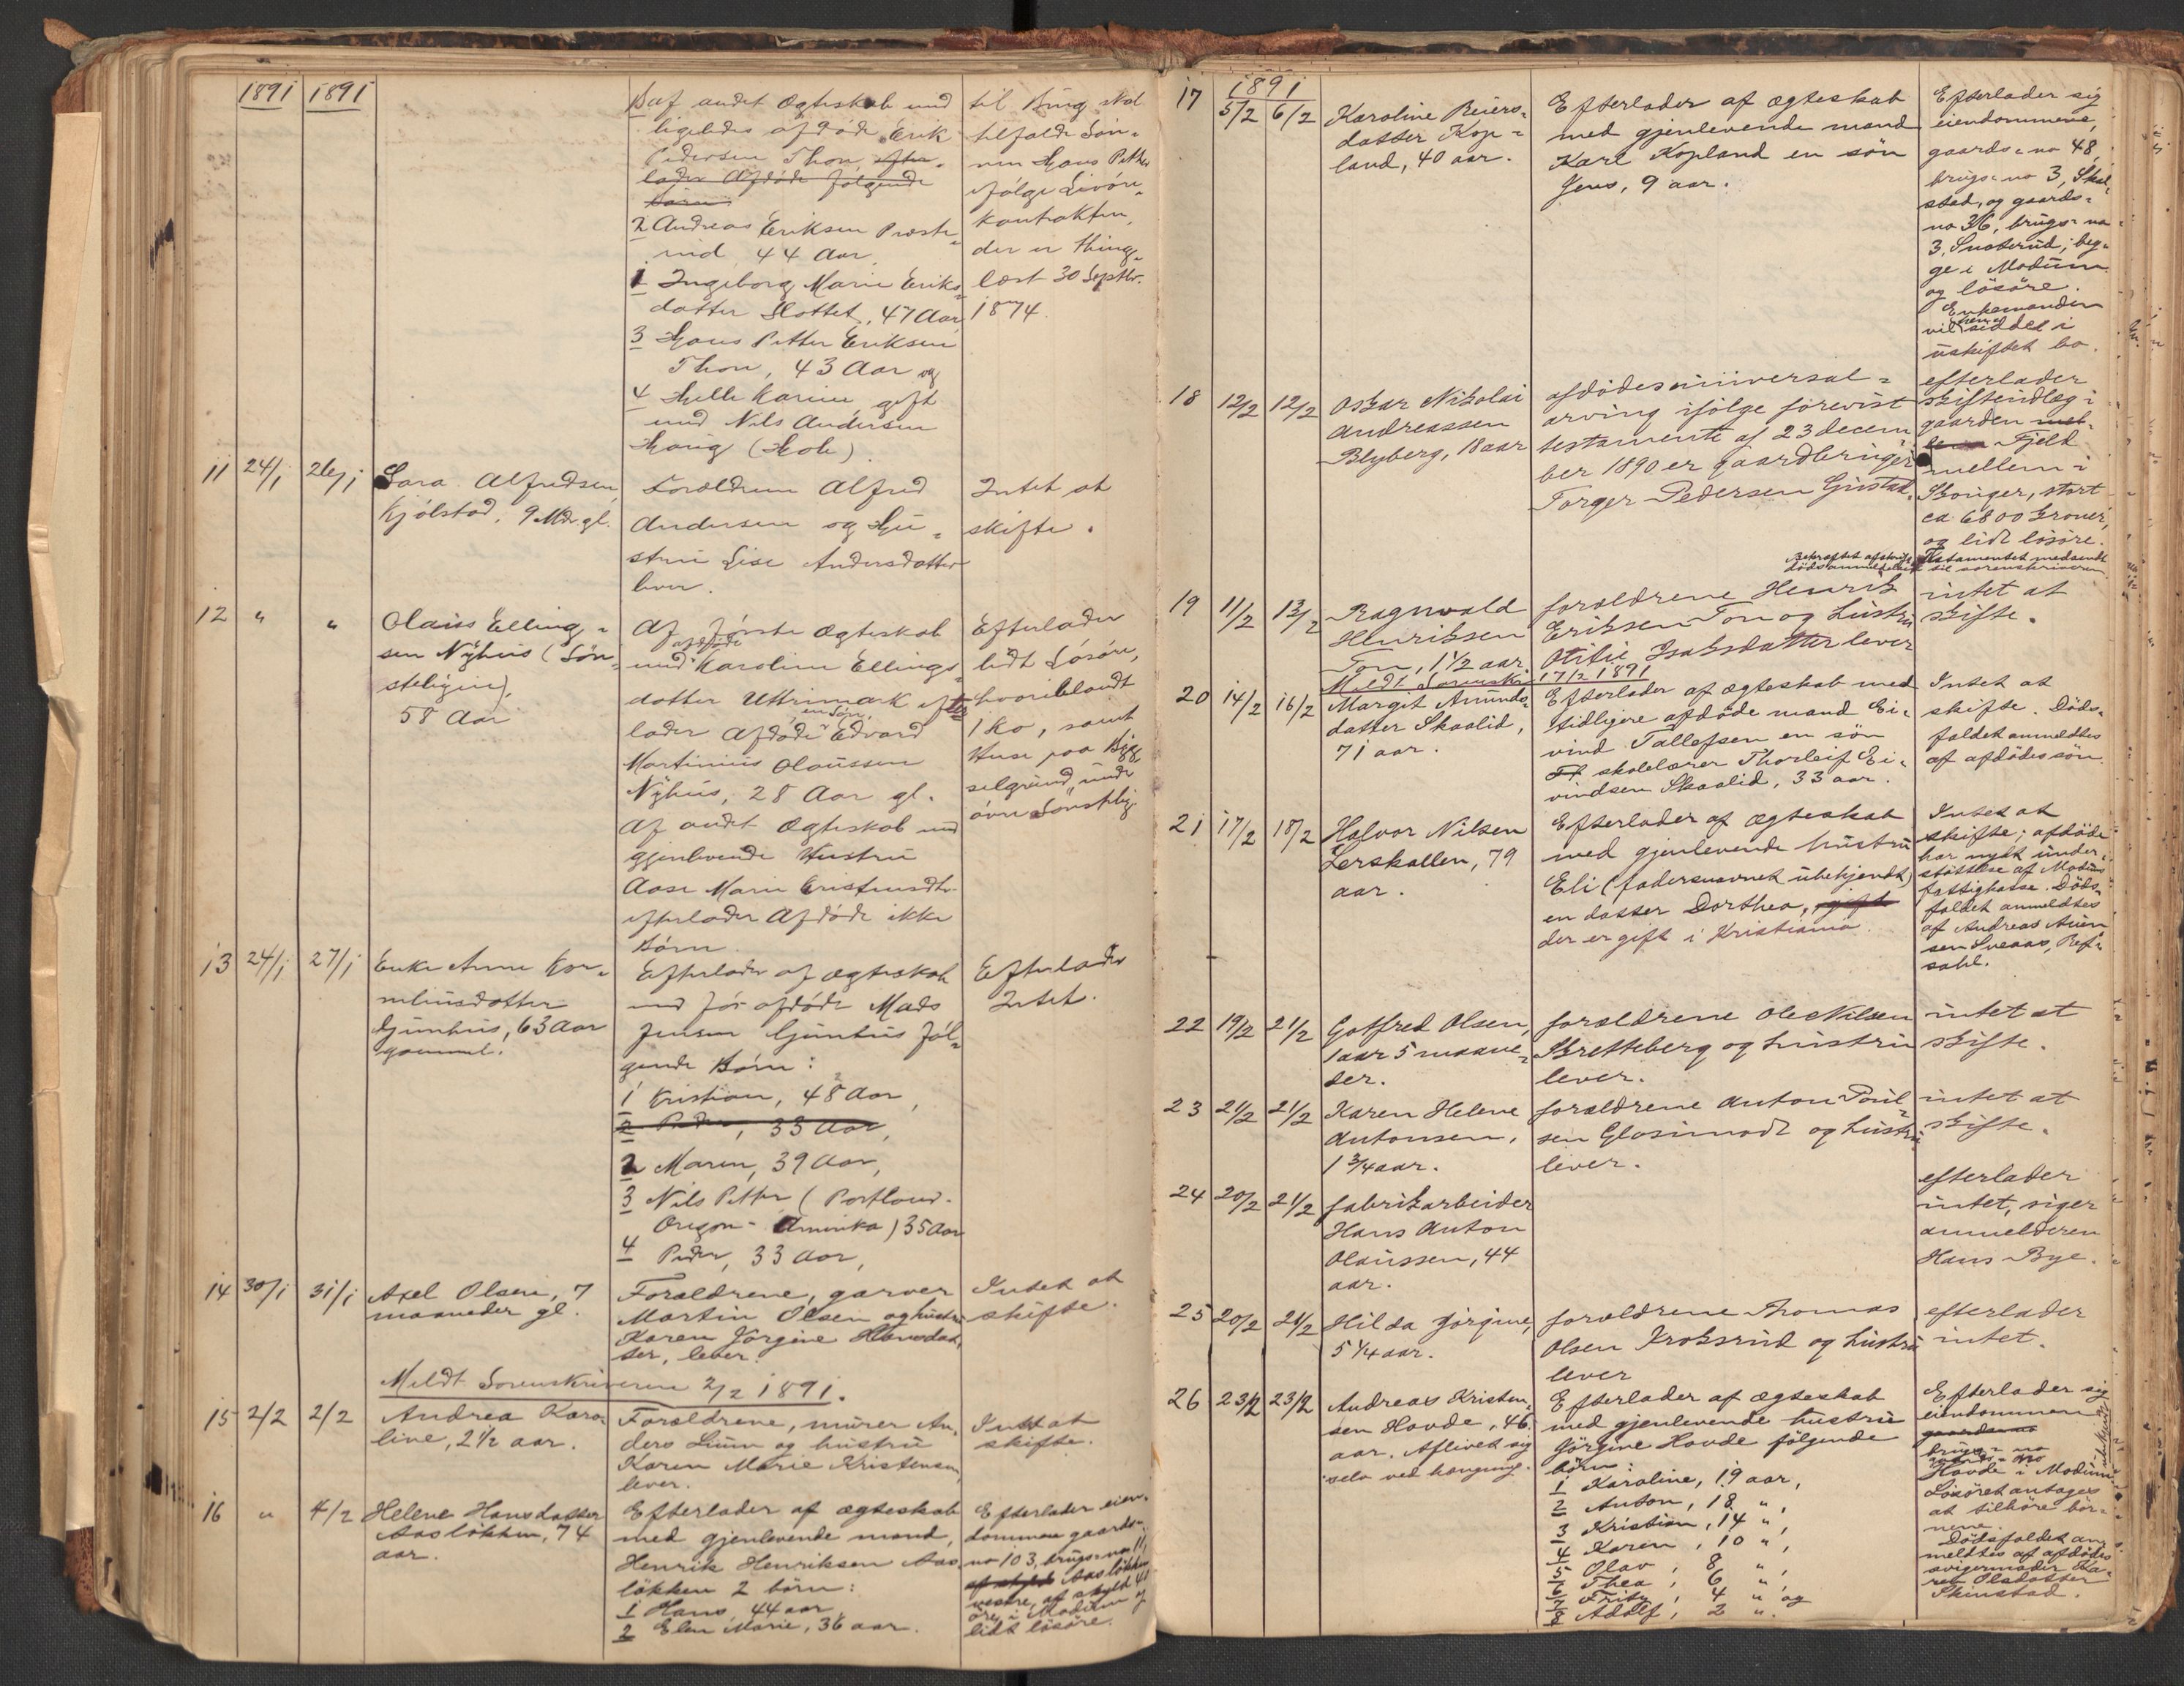 1891 1891
B af andet Ægteskab med
ligeledes afdøde Erik
Pedersen Thon, efter-
lader Afdøde følgende
børn:
2 Andreas Eriksen Præste-
rud 44 Aar
1 Ingeborg Marie Eriks-
datter Slottet, 47 Aar
3 Hans Petter Eriksen
Thon, 43 Aar og
4 Helle Karine, gift
med Nils Andersen
Haug (Hole)
til Brug skal
tilfalde Søn-
nen Hans Petter
ifølge Livøre-
kontrakten,
der er thing-
læst 30 Septbr.
1874.
11 24/1 26/1 Sara Alfredsen
Kjølstad, 9 Mdr gl.
Forældrene Alfred
Andersen og Hu-
stru Lise Andersdatter
lever.
Intet at
skifte.
12 " " Olaus Elling-
sen Nyhus (Søn-
steby ),
58 Aar
Af første Ægteskab
med afdøde Karoline Ellings-
datter Uttrimark efter-
lader Afdøde en Søn, Edvard
Martinius Olaussen
Nyhus, 28 Aar gl.
Af andet Ægteskab med
gjenlevende Hustru
Aase Marie Cristensdtr.
efterlader Afdøde ikke
Børn.
Efterlader
lidt Løsøre,
hvoriblandt
1 ko, samt
Huse paa Byg-
selgrund under
øvre Sønsteby
13 24/1 27/1 Enke Anne Kor-
neliusdatter
Gunhus, 63 Aar
gammel.
Efterlader af Ægteskab
med før afdøde Mads
Jensen Gunhus føl-
gende Børn:
1 Kristian, 48 Aar,
2 Peder, 33 Aar,
2 Maren, 39 Aar,
3 Nils Petter (Portland-
Oregon - Amerika) 35 Aar
4 Peder, 33 Aar,
Efterlader
Intet.
14 30/1 31/1 Axel Olsen, 7
maaneder gl.
Forældrene, garver
Martin Olsen og hustru
Karen Jørgine Hansdat-
ter, lever.
Intet at
skifte.
Meldt Sorenskriveren 2/2 1891.
15 2/2 2/2 Andrea Karo-
line, 2 1/2 aar.
Forældrene, murer An-
ders Lunn og hustru
Karen Marie Kristensen
lever.
Intet at
skifte.
16 " 4/2 Helene Hansdatter
Aasløkken, 74
aar.
Efterlader af ægteskab
med gjenlevende mand,
Henrik Henriksen Aas-
løkken 2 børn:
1 Hans, 44 aar
2 Elen Marie, 36 aar.
Efterlader eien-
dommen gaards-
no 103, brugs-no 11,
af skyld Aasløkken
vestre, af skyld 41
øre, i Modum og
lidt løsøre.
1891
17 5/2 6/2 Karoline Reiers-
datter Kop-
land, 40 aar.
Efterlader af ægteskab
med gjenlevende mand
Karl Kopland en søn
Jens, 9 aar.
Efterlader sig
eiendommene,
gaards-no 48,
brugs-no 3, Skal-
stad, og gaards-
no 36, brugs-no
3, Snoterud, beg-
ge i Modum
og løsøre.
Enkemanden
vil hensidde i
uskiftet bo.
18 12/2 12/2 Oskar Nikolai
Andreassen
Blyberg, 18 aar
afdødes universal-
arving ifølge forevist
testamente af 23 decem
ber 1890 er gaardbruger
Torger Pedersen Gustad.
Bekræftet afskrift
dødsanmeldelsen
efterlader
skifteudlæg i
gaarden mel-
lem Fjeld
mellem i
Skouger, stort
ca 6800 kroner,
og lidt løsøre.
Testamentet medsendt
til sorenskriveren
19 11/2 13/2 Ragnvald
Henriksen
Ton, 1 1/2 aar.
forældrene Henrik
Eriksen Ton og hustru
Otilie Isaksdatter lever
intet at
skifte.
Meldt Sorenskr. 17/2 1891
20 14/2 16/2 Margit Amunds-
datter Skaalid,
71 aar.
Efterlader af ægteskab med
tidligere afdøde mand Ei-
vind Tallefsen en søn
skolelærer Thorleif Ei-
vindsen Skaalid, 33 aar.
Intet at
skifte. Døds-
faldet anmeldtes
af afdødes søn.
21 17/2 18/2 Halvor Nilsen
Lerskallen, 79
aar.
Efterlader af ægteskab
med gjenlevende hustru
Eli (fadersnavnet ubekjendt)
en datter Dorthea, gift
der er gift i Kristiania
Intet at
skifte; afdøde
har nydt under-
støttelse af Modums
fattigkasse. Døds-
faldet anmeldtes
af Andreas Aun-
sen Sveaas, Ref-
sahl.
22 19/2 21/2 Gotfred Olsen,
1 aar 5 maane-
der.
forældrene Ole Nilsen
Bretteberg og hustru
lever.
intet at
skifte.
23 21/2 21/2 Karen Helene
Antonsen,
1 3/4 aar.
forældrene Anton Poul-
sen Glosimodt og hustru
lever.
intet at
skifte.
24 20/2 21/2 fabrikarbeider
Hans Anton
Olaussen, 44
aar.
efterlader
intet, siger
anmelderen
Hans Bye.
25 20/2 21/2 Hilda Jørgine,
5 1/4 aar.
forældrene Thomas
Olsen Kroksrud og hustru
lever
efterlader
intet.
26 23/2 23/2 Andreas Kristen-
sen Hovde, 46
aar. Aflivet sig
selv ved hængning.
Efterlader af ægteskab
med gjenlevende hustru
Jørgine Hovde følgende
børn:
1 Karoline, 19 aar,
2 Anton, 18 ",
3 Kristian, 14 ",
4 Karen, 10 ",
5 Olav, 8 ",
6 Thea, 6 ",
7 Fritz, 4 " og
8 Adolf, 2 ".
Efterlader sig
eiendommen
gaards-no
brugs-no
gaards-no ubekjendt
Hovde i Modum
Løsøret antages
at tilhøre bør-
nene.
Dødsfaldet an-
meldtes af afdødes
svigermoder Ka-
ren Olsdatter
Skinstad.